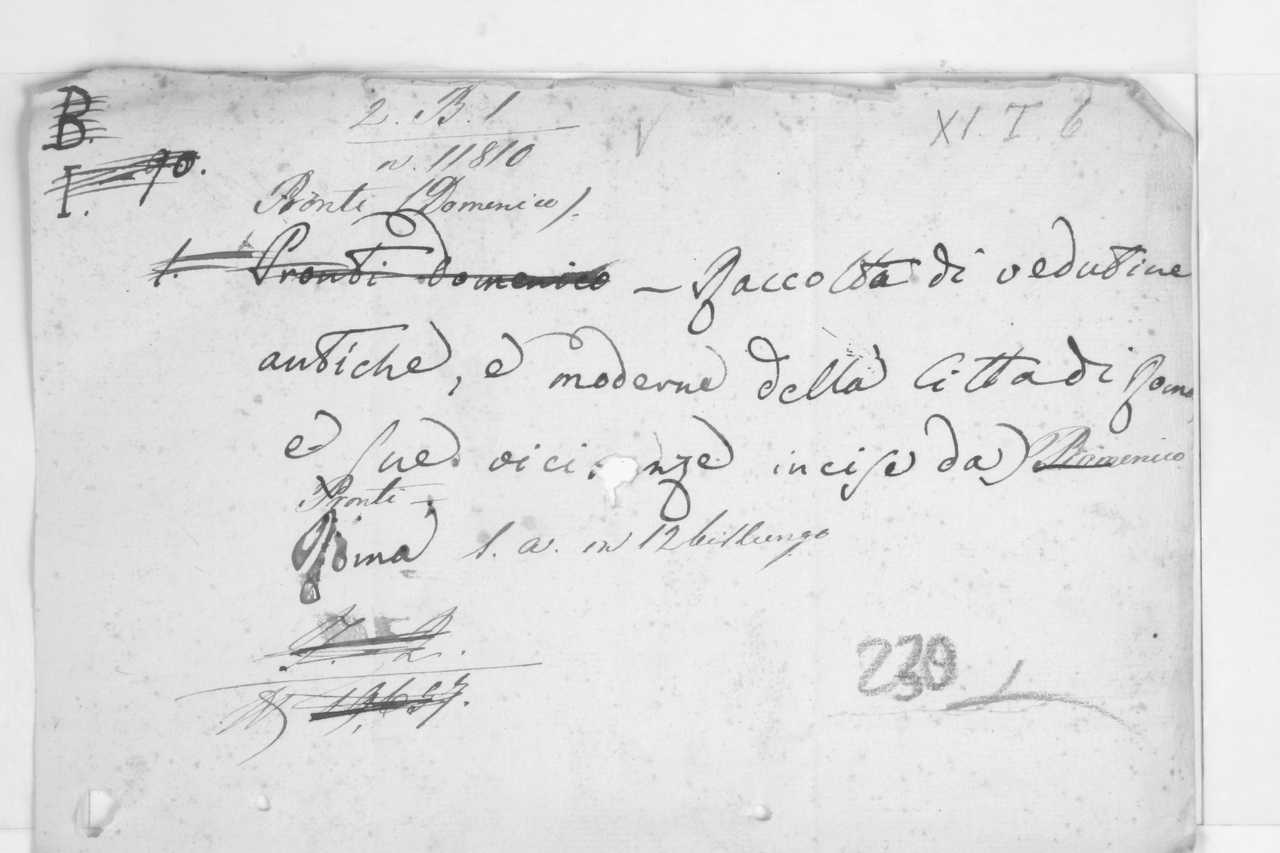 B.
2. B. 1
XI. I. 6
I. 90.
n. 11810
Pronti (Domenico).
1. Pronti Domenico – Raccolta di vedutine
antiche, e moderne della Città di Roma
e sue vicinze incise da Domenico
Pronti.
Roma s. a. in 12 bislungo